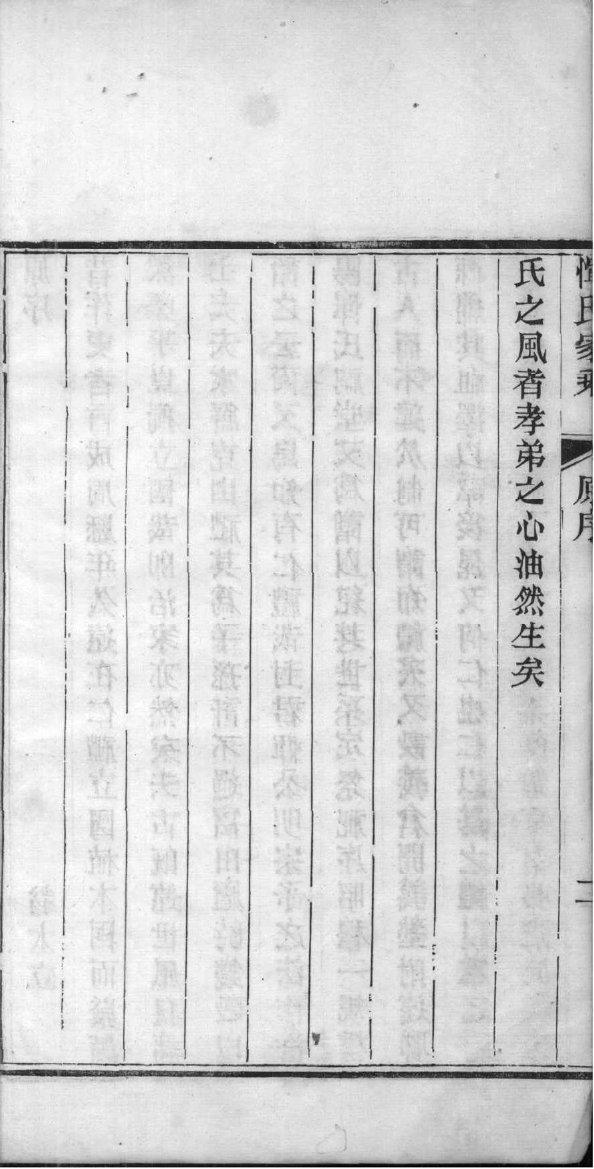 惲氏家乘
原序
二
氏之風者孝弟之心油然生矣